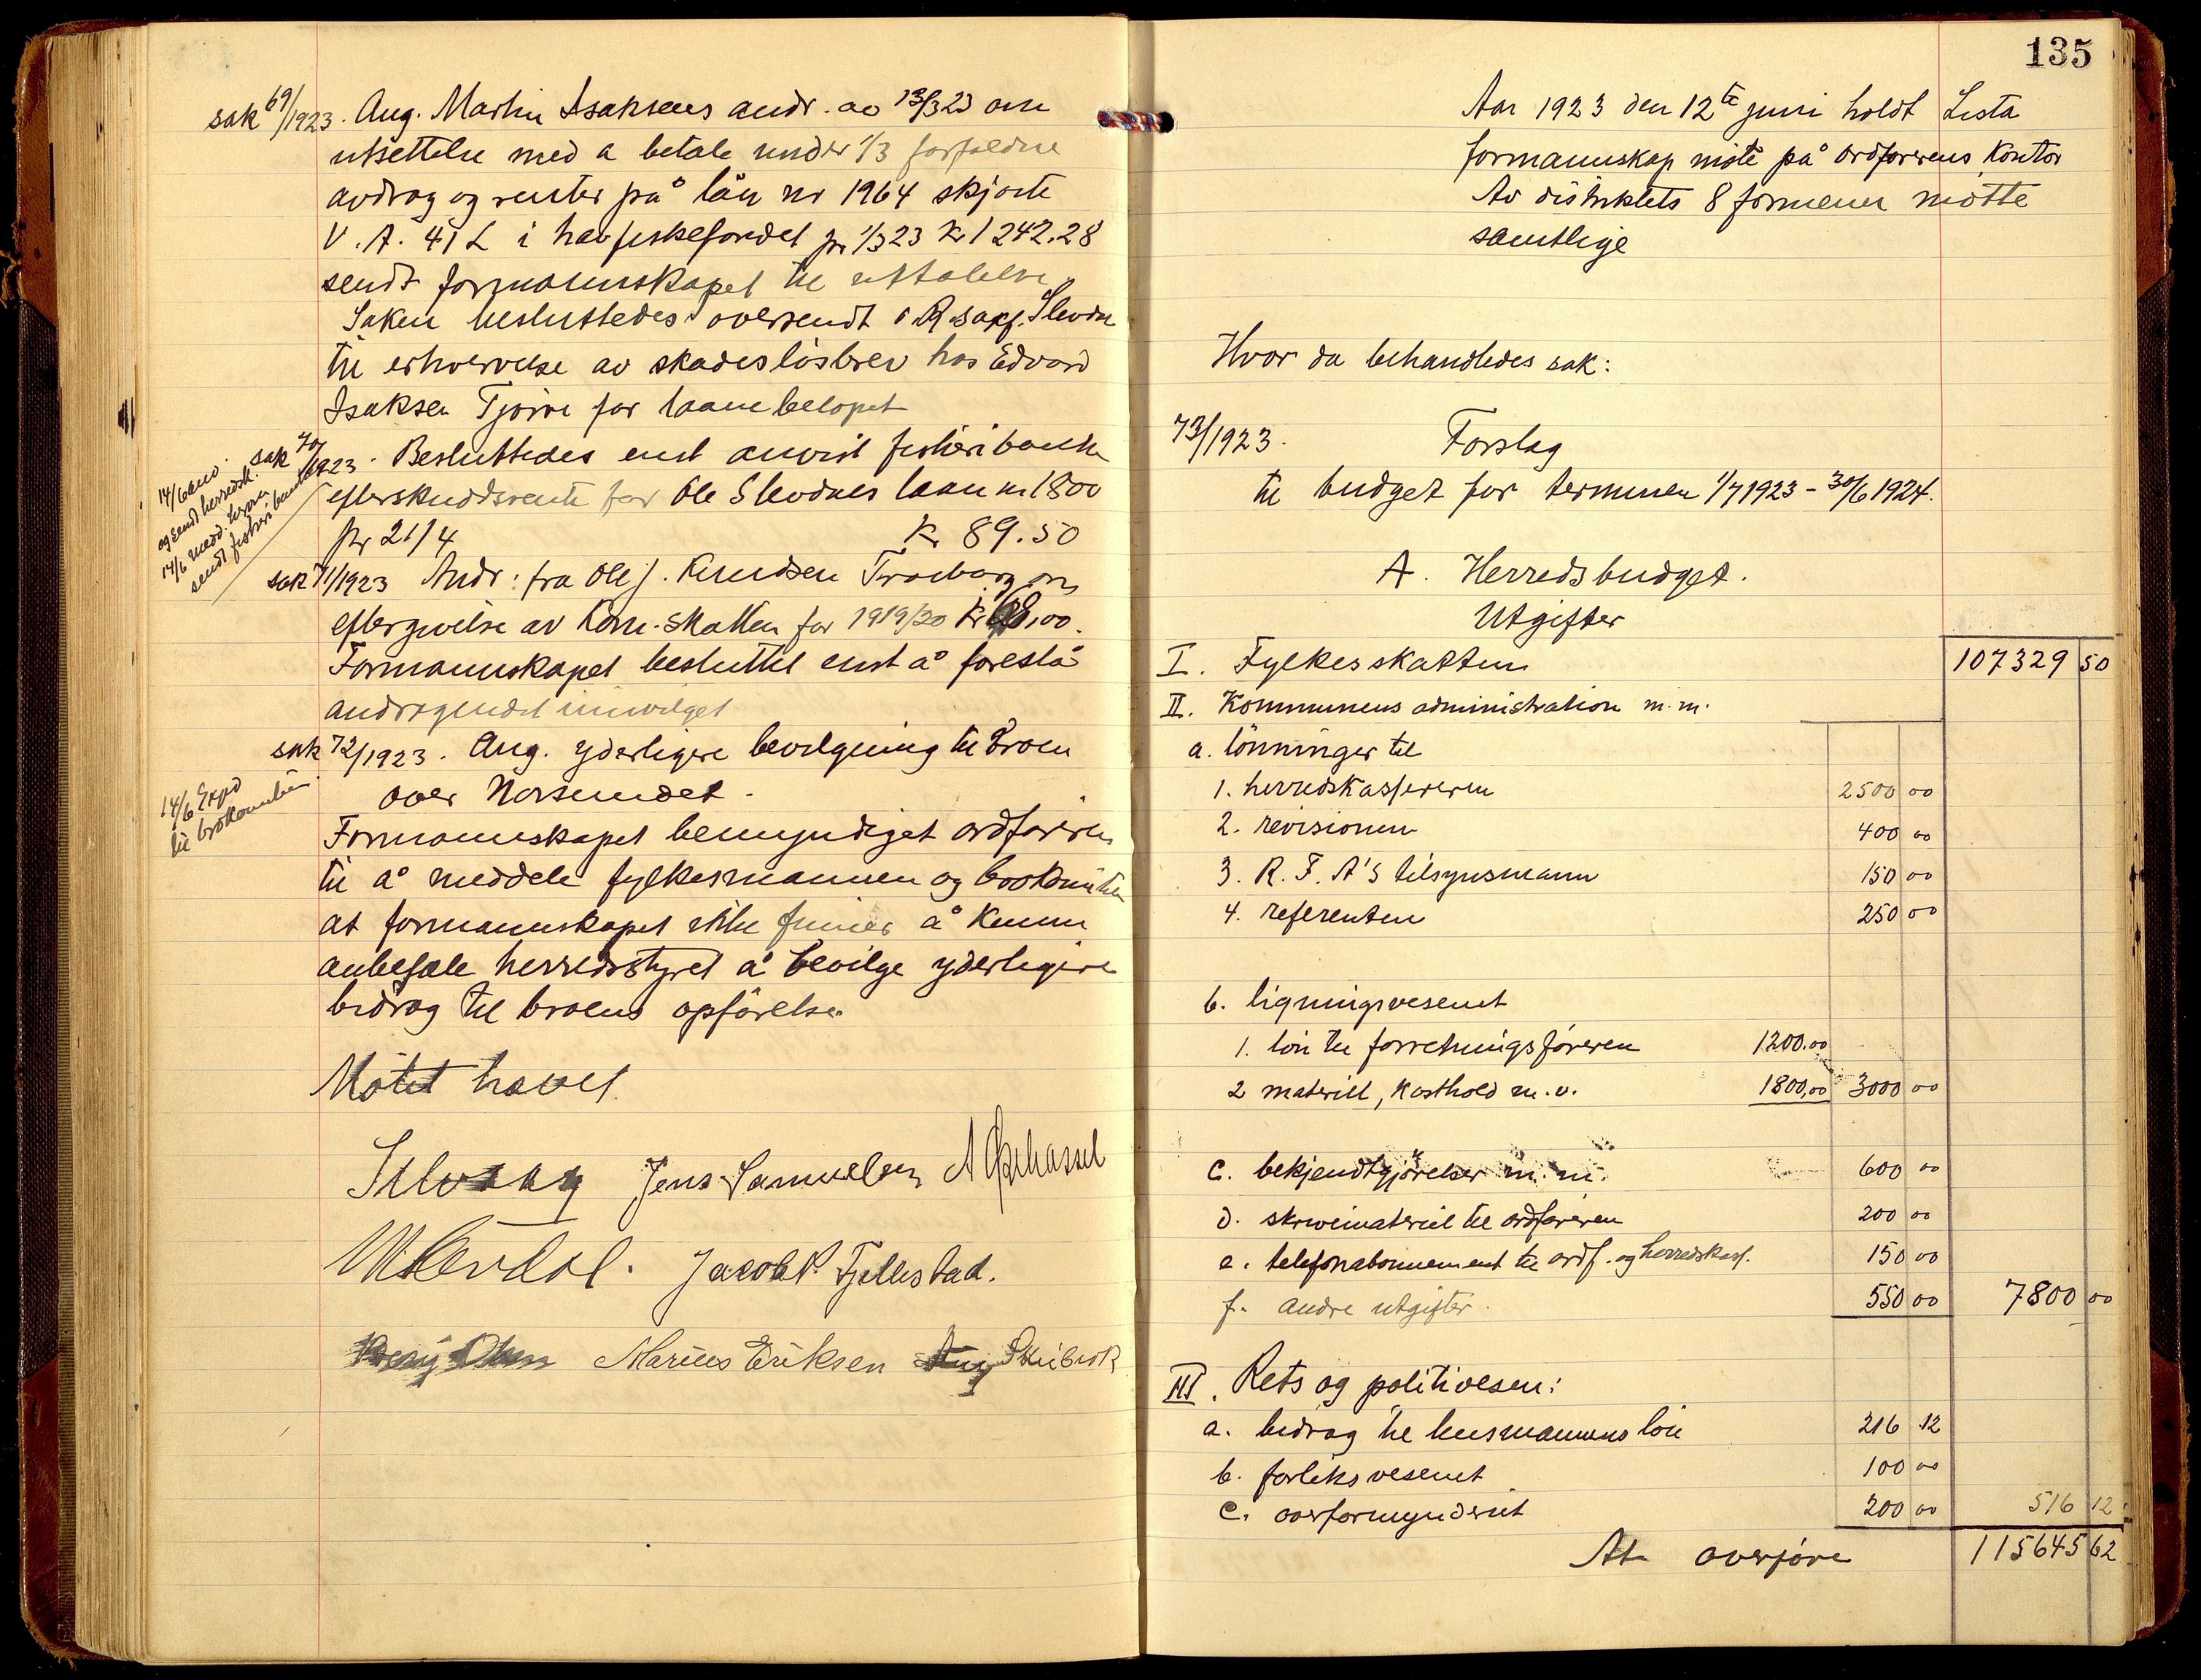 sak 69/1923. Ang. Martin Isaksens andr. av 13/3 23 om
utsettelse med a betale under 1/3 forfaldne
avdrag og renter på lån nr 1964 skjøite
V. A. 41 L i havfiskefondet pr 1/3 23 Kr 1242.28
sendt formannskapet til uttalelse
Saken besluttedes oversendt o.R.sakf. Slevdal
til erhvervelse av skadesløsbrev hos Edvard
Isaksen Tjørve for laanebeløpet
sak 70/1923. Besluttedes enst anvist fiskeribanken
efterskuddsrente for Ole Slevdals laan kr 1800
pr 21/4 Kr 89.50
14/6 anv.
og sendt herredsk.
14/6 medd.
sendt fiskeribanken
sak 71/1923 Andr: fra Ole J. Knudsen om
eftergivelse av kom. skatten for 1919/20 Kr 68,00.
Formannskapet besluttet enst å foreslå
andragendet innvilget
sak 72/1923. Ang. yderligere bevilgning til broen
over Norsundet.
14/6 Exp
til brokomiteen
Formannskapet bemyndiget ordføreren
til å meddele fylkesmannen og brokomiteen
at formannskapet ikke finner å kunne
anbefale herredsstyret å bevilge yderligere
bidrag til broens opførelse.
Møtet hævet.
Jens Samuelsen
Jacob P. Fjellestad.
Marius Eriksen Aug Skeibrok
135
Aar 1923 den 12te juni holdt Lista
formannskap møte på ordførerens kontor
Av distriktets 8 formenn møtte
samtlige
Hvor da behandledes sak:
73/1923. Forslag
til budget for terminen 1/7 1923 - 30/6 1924.
A. Herredsbudget.
Utgifter
I. Fylkesskatten 107329 50
II. Kommunens administration m.m.
a. lønninger til
1. herredskassereren 2500 00
2. revisionen 400 00
3. R. F. A's tilsynsmann 150 00
4. referenten 250 00
b. ligningsvesenet
1. løn til forretningsføreren 1200.00
2 materiell, kosthold m.v. 1800,00 3000 00
c. bekjendtgjørelser m.m. 600 00
d. skrivemateriel til ordføreren 200 00
e. telefonabonnement til ordf. og herredskass. 150 00
f. andre utgifter. 550 00 7800 00
III. Rets og politivesen:
a. bidrag til lensmannens løn 216 12
b. forliksvesenet 100 00
c. overformynderiet 200 00 516 12
At overføre 115645 62